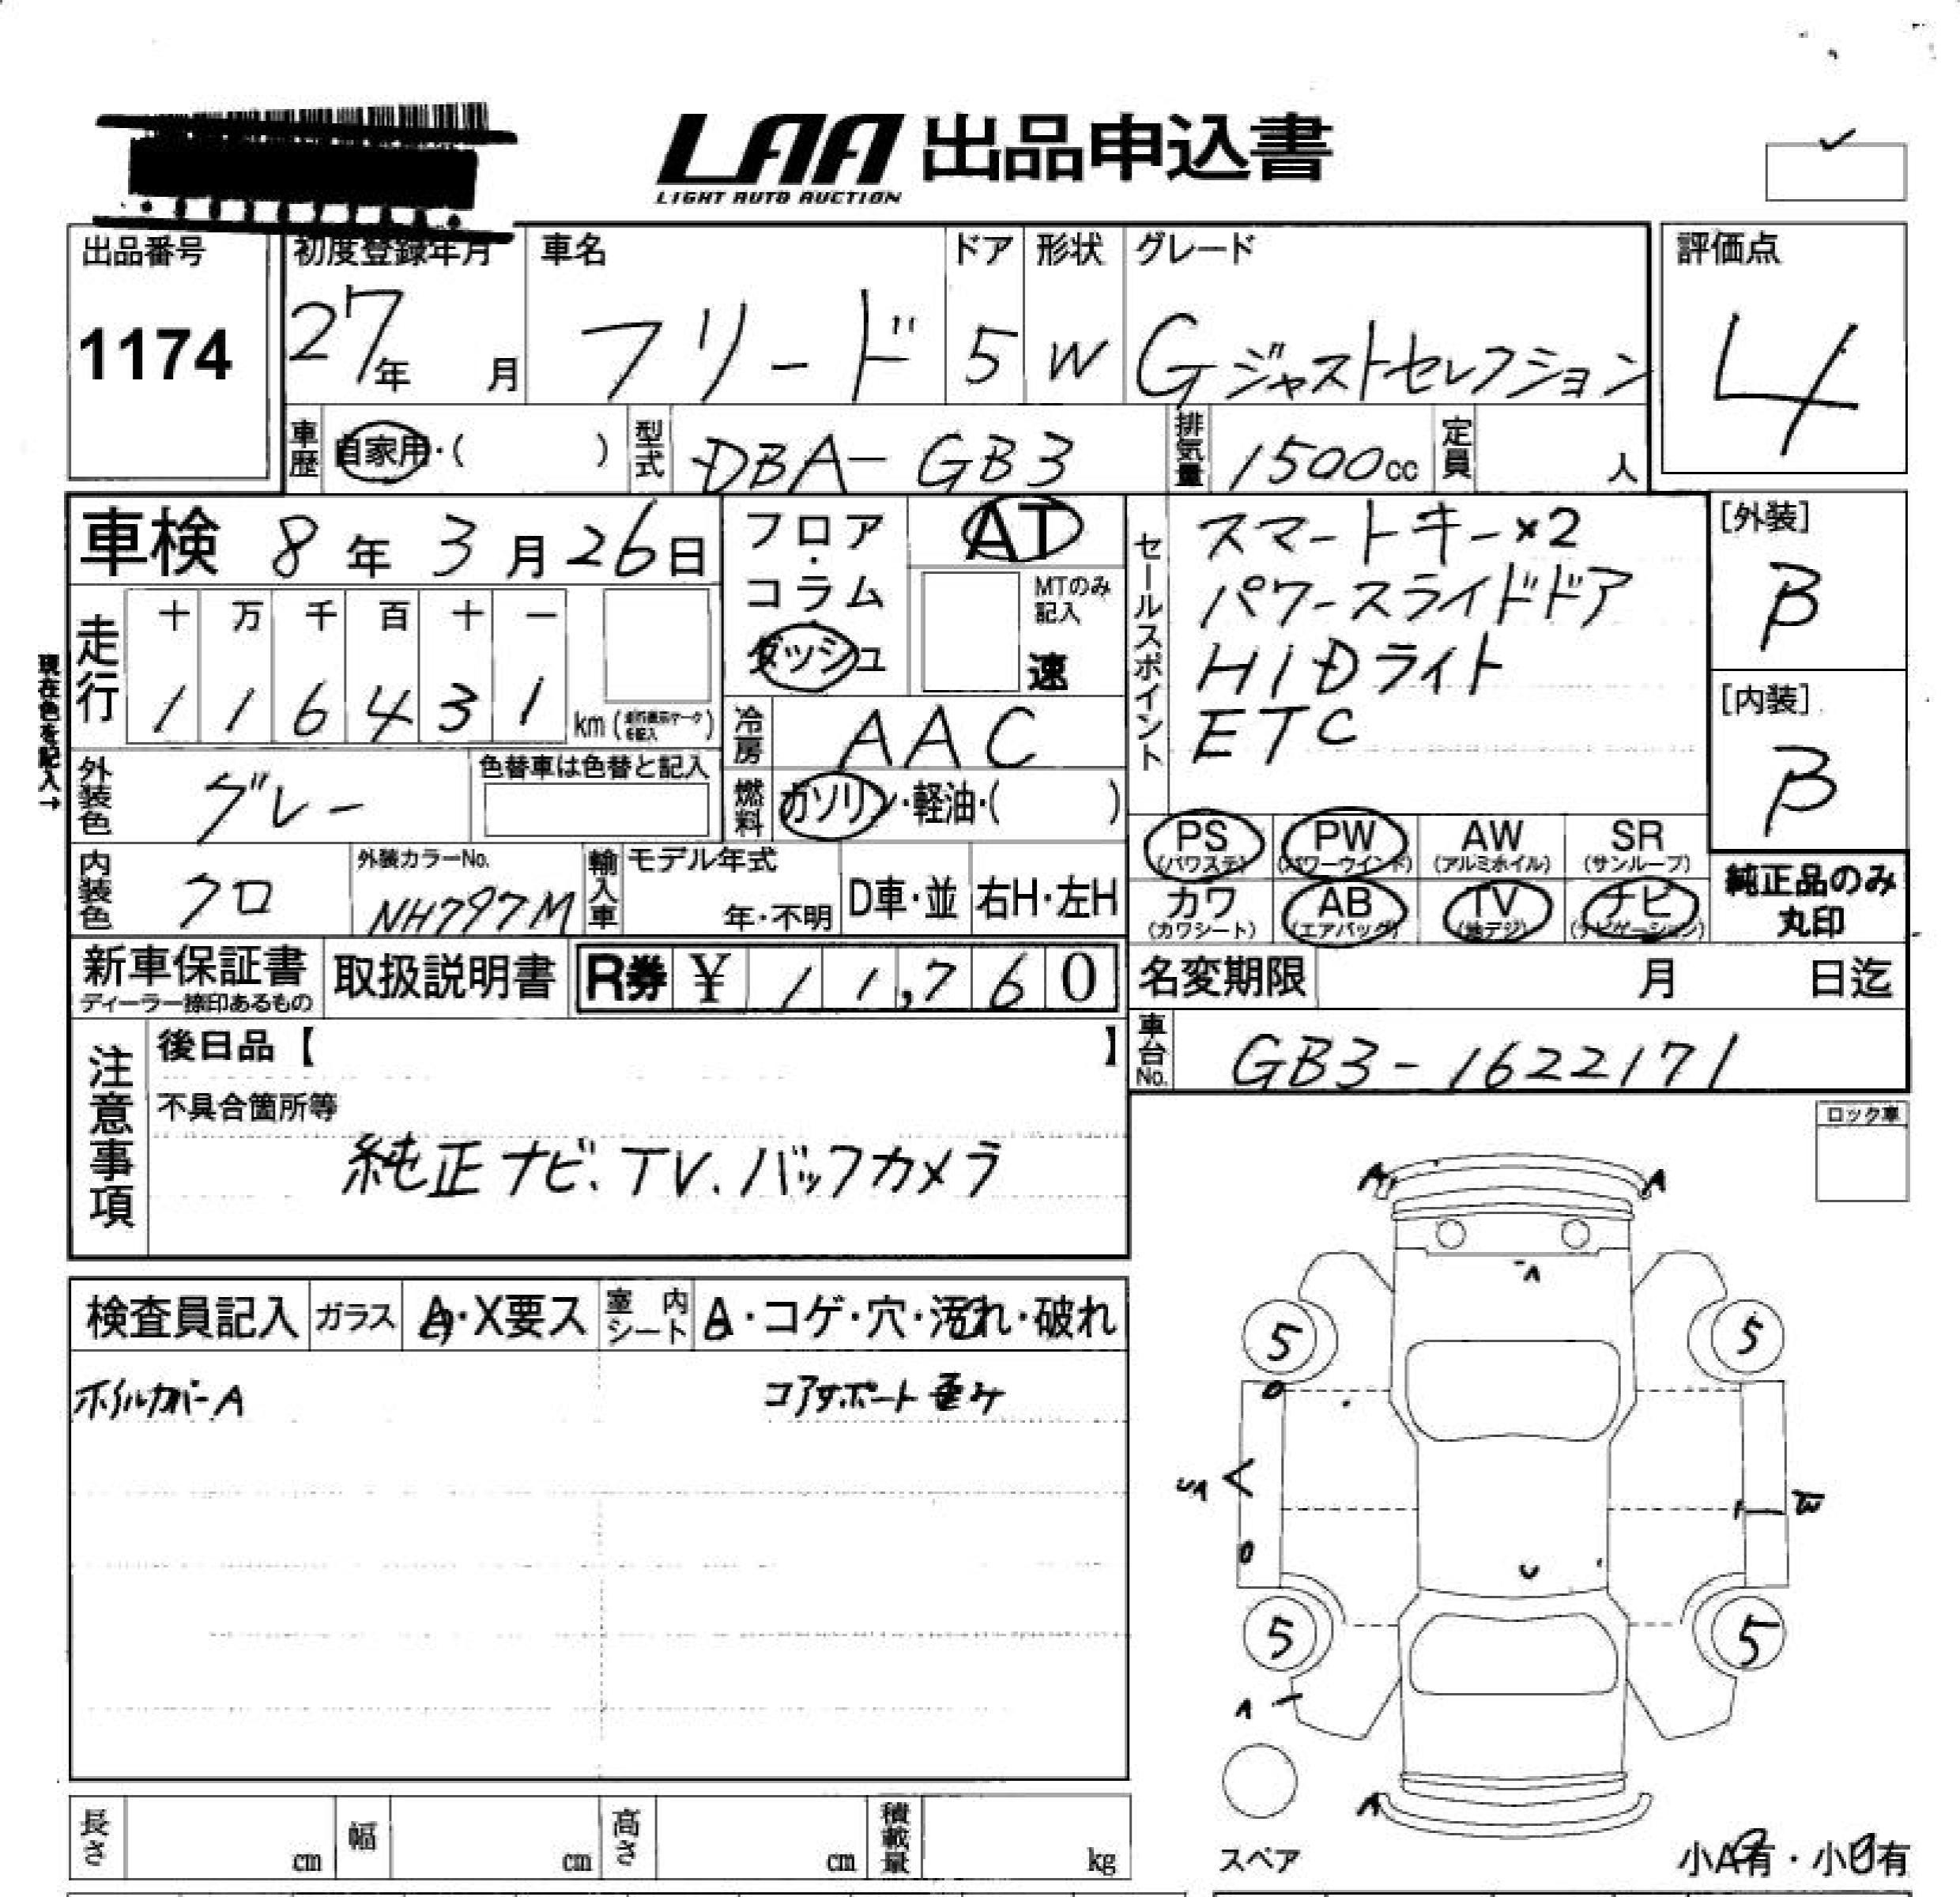 LAA 出品申込書
LIGHT AUTO AUCTION
出品番号
1174
初度登録年月
27年 月
車名
フリード
ドア
5
形状
W
グレード
Gジャストセレクション
評価点
4
車歴 自家用・( )
型式 DBA-GB3
排気量 1500cc
定員 人
車検 8年3月26日
フロア・コラム
ダッシュ
AT
MTのみ記入
速
セールスポイント
スマートキー×2
パワースライドドア
HIDライト
ETC
[外装]
B
[内装]
B
現在色を記入→
走行
十 万 千 百 十 一
1 1 6 4 3 1 km (走行表示マークを記入)
冷房 AAC
外装色 グレー
色替車は色替と記入
燃料 ガソリン・軽油・( )
PS (パワステ)
PW (パワーウインド)
AW (アルミホイル)
SR (サンルーフ)
カワ (カワシート)
AB (エアバッグ)
TV (地デジ)
ナビ (ナビゲーション)
純正品のみ
丸印
内装色 クロ
外装カラーNo.
NH797M
輸入車
モデル年式
年・不明
D車・並
右H・左H
新車保証書
ディーラー捺印あるもの
取扱説明書
R券 ¥ 11,760
名変期限 月 日迄
車台No. GB3-1622171
注意事項
後日品【 】
不具合箇所等
純正ナビ.TV.バックカメラ
ロック車
検査員記入
ガラス
A・X要ス
室内シート
A・コゲ・穴・汚れ・破れ
ホイルカバーA
コアサポート歪み
A A
A
5 5
UA
W
U
5 5
A
A
スペア
小A有・小U有
長さ cm
幅 cm
高さ cm
積載量 kg